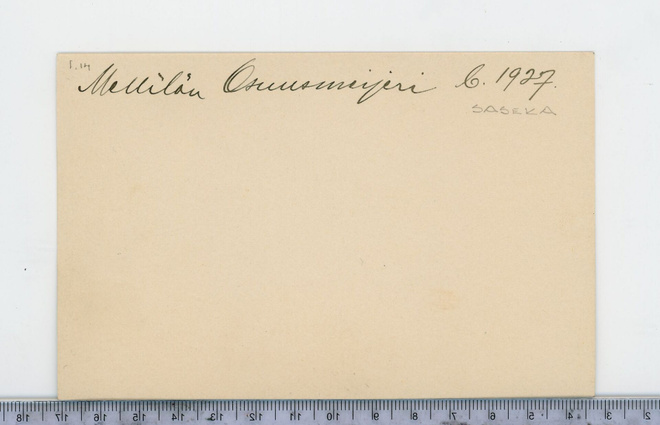 1.14
Mellilän Osuusmeijeri b. 1927.
SASEKA
18 17 16 15 14 13 12 11 10 9 8 7 6 5 4 3 2